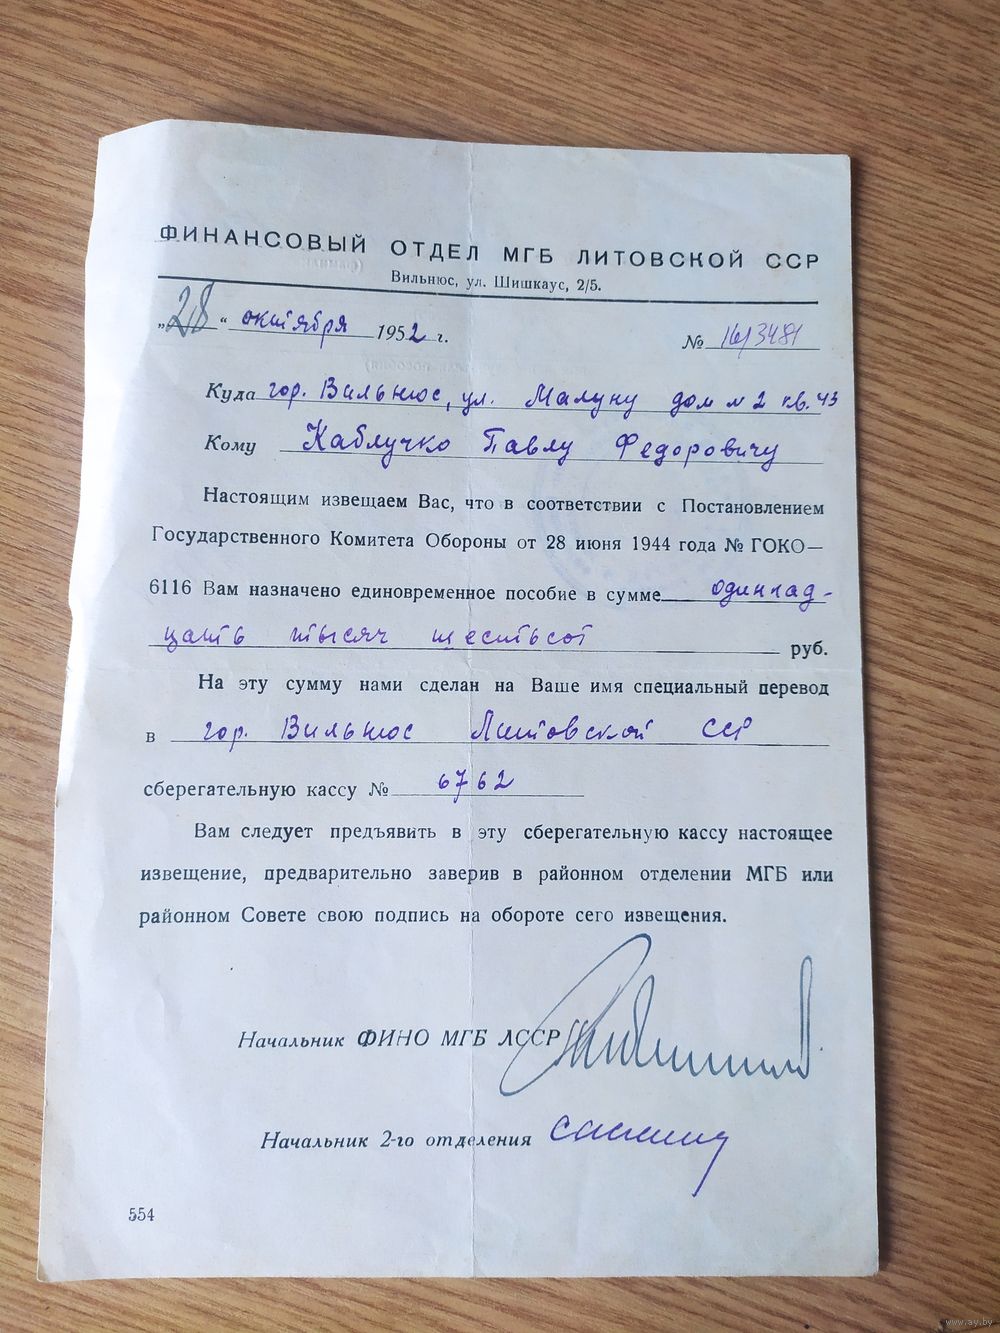 ФИНАНСОВЫЙ ОТДЕЛ МГБ ЛИТОВСКОЙ ССР
Вильнюс, ул. Шишкаус, 2/5.
„28“ октября 1952 г.
№ 16/3481
Куда гор. Вильнюс, ул. Малуну дом № 2 кв. 43
Кому Каблучко Павлу Федоровичу
Настоящим извещаем Вас, что в соответствии с Постановлением
Государственного Комитета Обороны от 28 июня 1944 года № ГОКО—
6116 Вам назначено единовременное пособие в сумме одиннад-
цать тысяч шестьсот руб.
На эту сумму нами сделан на Ваше имя специальный перевод
в гор. Вильнюс Литовской ССР
сберегательную кассу № 6762
Вам следует предъявить в эту сберегательную кассу настоящее
извещение, предварительно заверив в районном отделении МГБ или
районном Совете свою подпись на обороте сего извещения.
Начальник ФИНО МГБ ЛССР
Начальник 2-го отделения
554
www.ay.by